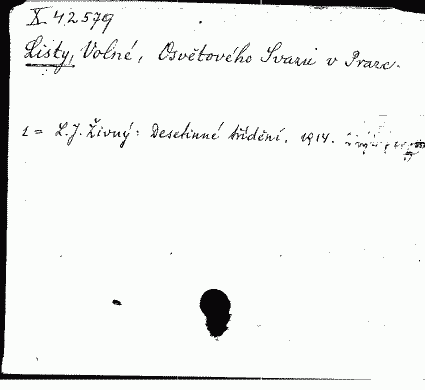 X 42579
Listy, Volné, Osvětového Svazu v Praze.
1 = L.J. Živný: Desetinné třídění. 1914.